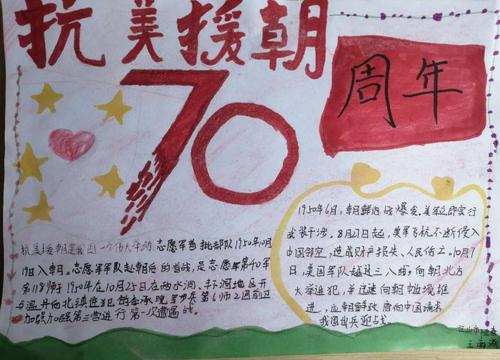 抗美援朝
70
周年
抗美援朝是 一个伟大 志愿军首批部队1950年10月
19日入朝。志愿军军队赴朝后的首战,是志愿军第40军
第118师1950年在10月25日在两水洞、丰沉地区开
与温井向北镇进犯的南朝鲜 第6师2团前卫
加强 第三营进行第一次遭遇战。
1950年6月,朝鲜内战爆发。美军立即实行
武装干涉。8月27日起,美军飞机不断侵入
中国领空,造成财产损失、人民伤亡。10月7
日,美国军队越过三八线,向朝北方
大举进犯,并迅速向朝中边境推
进,
我国出兵迎战。